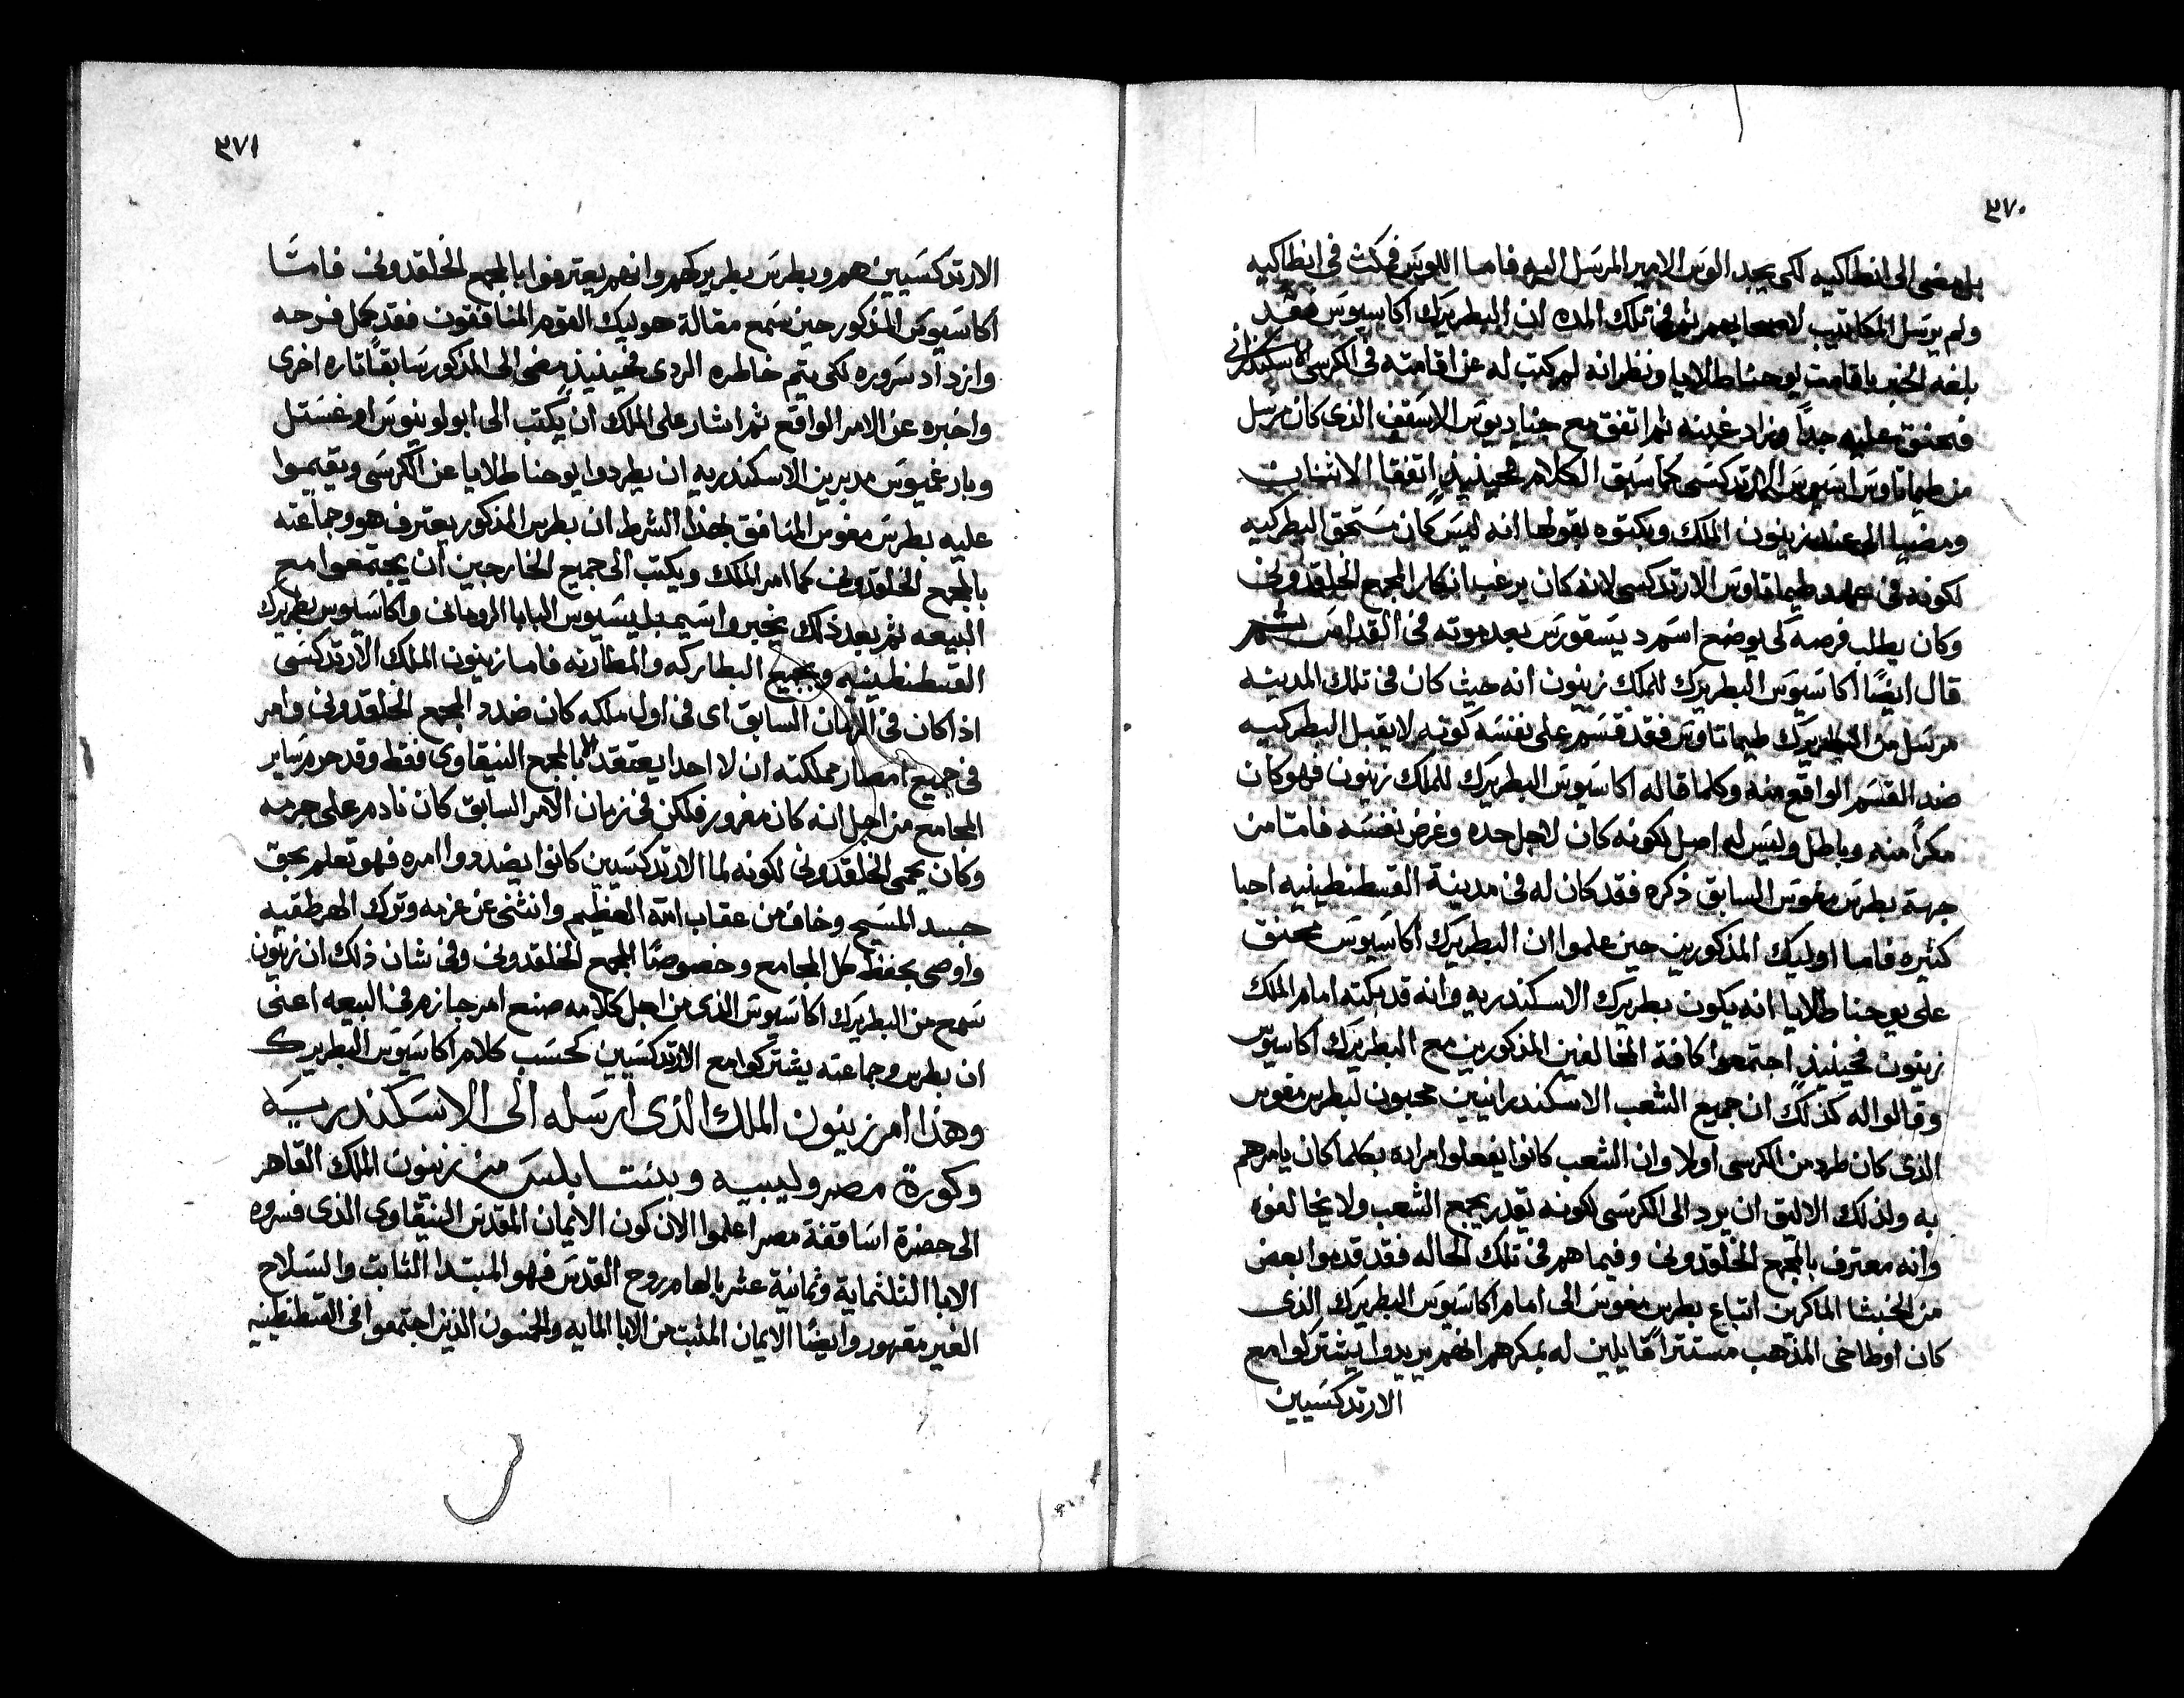 ٣٧٠
بل مضى الى انطاكيه لكى يجد الوس الامير المرسل اليه فاما اللوس فمكث فى انطاكيه
ولم يرسل المكاتيب لاصحابهم ثم فى تلك المده ان البطريرك اكاسيوس فقد
بلغه الخبر باقامت يوحنا طلايا ونظر انه لم كتب له عن اقامته فى الكرسى الاسكندرانى
فحنق عليه جداً وزاد غبنه ثم اتفق مع جناديوس الاسقف الذى كان مرسل
من طيماتاوس اسيوس الارتدكسى كما سبق الكلام فحينيذٍ اتفقا الاثنان
ومضيا الى عند زينون الملك وبكتوه بقولها انه ليس كان مستحق البطركيه
لكونه فى عهد طيماتاوس الارتدكسى لانه كان يرغب انكار المجمع الخلقدونى
وكان يطلب فرصه لى يوضع اسم ديسقورس بعد موته فى القداس ثم
قال ايضًا اكاسيوس البطريرك للملك زينون انه حيث كان فى تلك المدينه
مرسل من البطريرك طيماتاوس فقد قسم على نفسه كونه لا يقبل البطركيه
ضد القسم الواقع منه وكلما قاله اكاسيوس البطريرك للملك زينون فهو كان
مكراً منه وباطل وليس له اصل لكونه كان لاجل حده وغرض نفسه فامّا من
جهة بطرس مغوس السابق ذكره فقد كان له فى مدينة القسطنطينيه احبا
كثيره فاما اوليك المذكورين حين علموا ان البطريرك اكاسيوس محنق
على يوحنا طلايا انه يكون بطريرك الاسكندريه وانه قد بكته امام الملك
زينون فحينيذٍ اجتمعوا كافة المخالفين المذكورين مع البطريرك اكاسيوس
وقالوا له كذلك ان جميع الشعب الاسكندرانيين محبون لبطرس مغوس
الذى كان طرد من الكرسى اولا وان الشعب كانوا يفعلوا مراده بكلما كان يامرهم
به ولذلك الاليق ان يرد الى الكرسى لكونه يقدر يجمع الشعب ولا يخالفوه
وانه معترف بالمجمع الخلقدونى وفيما هم فى تلك الحاله فقد قدموا بعض
من الخبثا الماكرين اتباع بطرس مغوس الى امام اكاسيوس البطريرك الذى
كان اوطاخى المذهب مستتراً قايلين له بمكرهم انهم يريدوا يشتركوا مع
الارتدكسيين
٣٧١
الارتدكسيين هم وبطرس بطريركهم وانهم يعترفوا بالمجمع الخلقدونى فامّا
اكاسيوس المذكور حين سمع مقالة هوليك القوم المنافقون فقد كمل فرحه
وازداد سروره لكى يتم خاطره الردى فحينيذٍ مضى الى المذكور سابقًا تاره اخرى
واخبره عن الامر الواقع ثم اشار على الملك ان يكتب الى ابولونيوس اوغستل
وبارغميوس مدبرين الاسكندريه ان يطردوا يوحنا طلايا عن الكرسى ويقيموا
عليه بطرس مغوس المنافق بهذا الشرط ان بطرس المذكور يعترف هو وجماعته
بالمجمع الخلقدونى كما امر الملك ويكتب الى جميع الخارجين ان يجتمعوا مع
البيعه ثم بعد ذلك يخبروا سيمبليسيوس البابا الرومانى واكاسيوس بطريرك
القسطنطينيه وجميع البطاركه والمطارنه فاما زينون الملك الارتدكسى
اذ اكان فى الزمان السابق اى فى اول ملكه كان ضدد المجمع الخلقدونى وامر
فى جميع امصار مملكته ان لا احدا يعتقد الا بالمجمع النيقاوى فقط وقد حرم ساير
المجامع من اجل انه كان مغرور فلكن فى زمان الامر السابق كان نادم على جرمه
وكان يحمى الخلقدونى لكونه لما الارتدكسيين كانوا يضددوا امره فهو تعلم بحق
جسد المسيح وخاف من عقاب الله العظيم وانثنى عن عزمه وترك الهرطقيه
واوصى بحفظ كل المجامع وخصوصًا المجمع الخلقدونى وفى شان ذلك ان زينون
سمع من البطريرك اكاسيوس الذى من اجل كلامه صنع امر جازم فى البيعه اعنى
ان بطرس وجماعته يشتركوا مع الارتدكسيين كحسب كلام اكاسيوس البطريرك
وهذا امر زينون الملك الذى ارسله الى الاسكندريه
وكورة مصر وليبيه وبنتابلس من زينون الملك القاهر
الى حضرة اساقفة مصر اعلموا الان كون الايمان المقدس النيقاوى الذى فسروه
الابا الثلثماية وثمانية عشر بالهام روح القدس فهو المبتدا الثابت والسلاح
الغير مقهور وايضًا الايمان المثبت من الابا المايه والخمسون الذين اجتمعوا فى القسطنطينيه